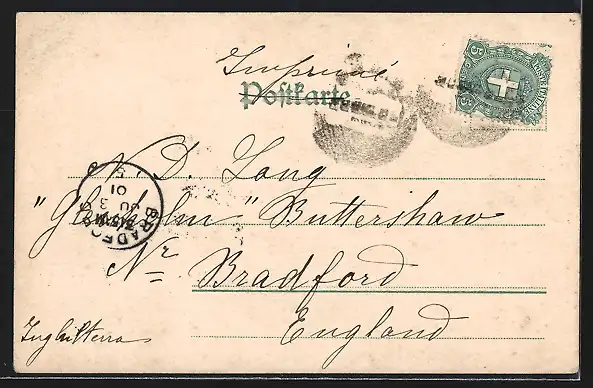 Imprimé
Postkarte
5 5
N. D. Long
"Glenholm" Buttershaw
Nr Bradford
England
Inghilterra
BRADFORD
JU 3
01